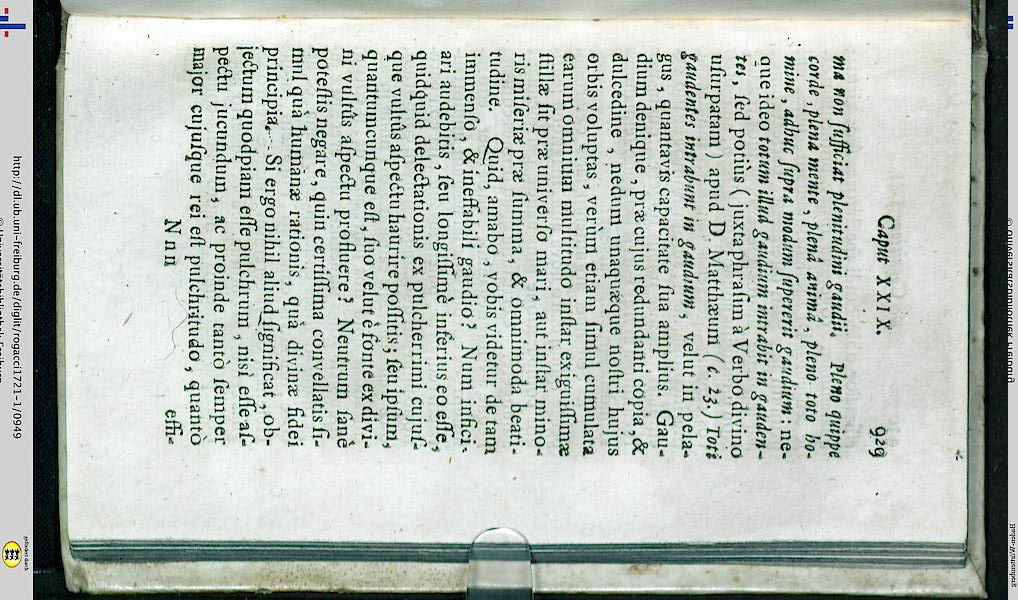 Caput XXIX. 929
ma non ſufficiat plenitudini gaudii. Pleno quippe
corde, plena mente, plenâ animâ, pleno toto ho-
mine, adhuc ſupra modum ſupererit gaudium: ne-
que ideo totum illud gaudium intrabit in gauden-
tes, ſed potiùs (juxta phraſim à Verbo divino
uſurpatam) apud D. Matthæum (c. 23.) Toti
gaudentes intrabunt in gaudium, velut in pela-
gus, quantavis capacitate ſua amplius. Gau-
dium denique, præ cujus redundanti copia, &
dulcedine, nedum unaquæque noſtri hujus
orbis voluptas, verùm etiam ſimul cumulata
earum omnium multitudo inſtar exiguiſſimæ
ſtillæ ſit præ univerſo mari, aut inſtar mino-
ris miſeriæ præ ſumma, & omnimoda beati-
tudine. Quid, amabo, vobis videtur de tam
immenſo, & ineffabili gaudio? Num infici-
ari audebitis, ſeu longiſſimè inferius eo eſſe,
quidquid delectationis ex pulcherrimi cujuſ-
que vultûs aſpectu haurire poſſitis; ſeu ipſum,
quantumcunque eſt, ſuo velut è fonte ex divi-
ni vultûs aſpectu profluere? Neutrum ſanè
poteſtis negare, quin certiſſima convellatis ſi-
mul quà humanæ rationis, quà divinæ fidei
principia. Si ergo nihil aliud ſignificat, ob-
jectum quodpiam eſſe pulchrum, niſi eſſe aſ-
pectu jucundum, ac proinde tantò ſemper
major cujuſque rei eſt pulchritudo, quantò
Nnn effi-
http://dl.ub.uni-freiburg.de/diglit/rogacci1721-1/0949
© Universitätsbibliothek Freiburg